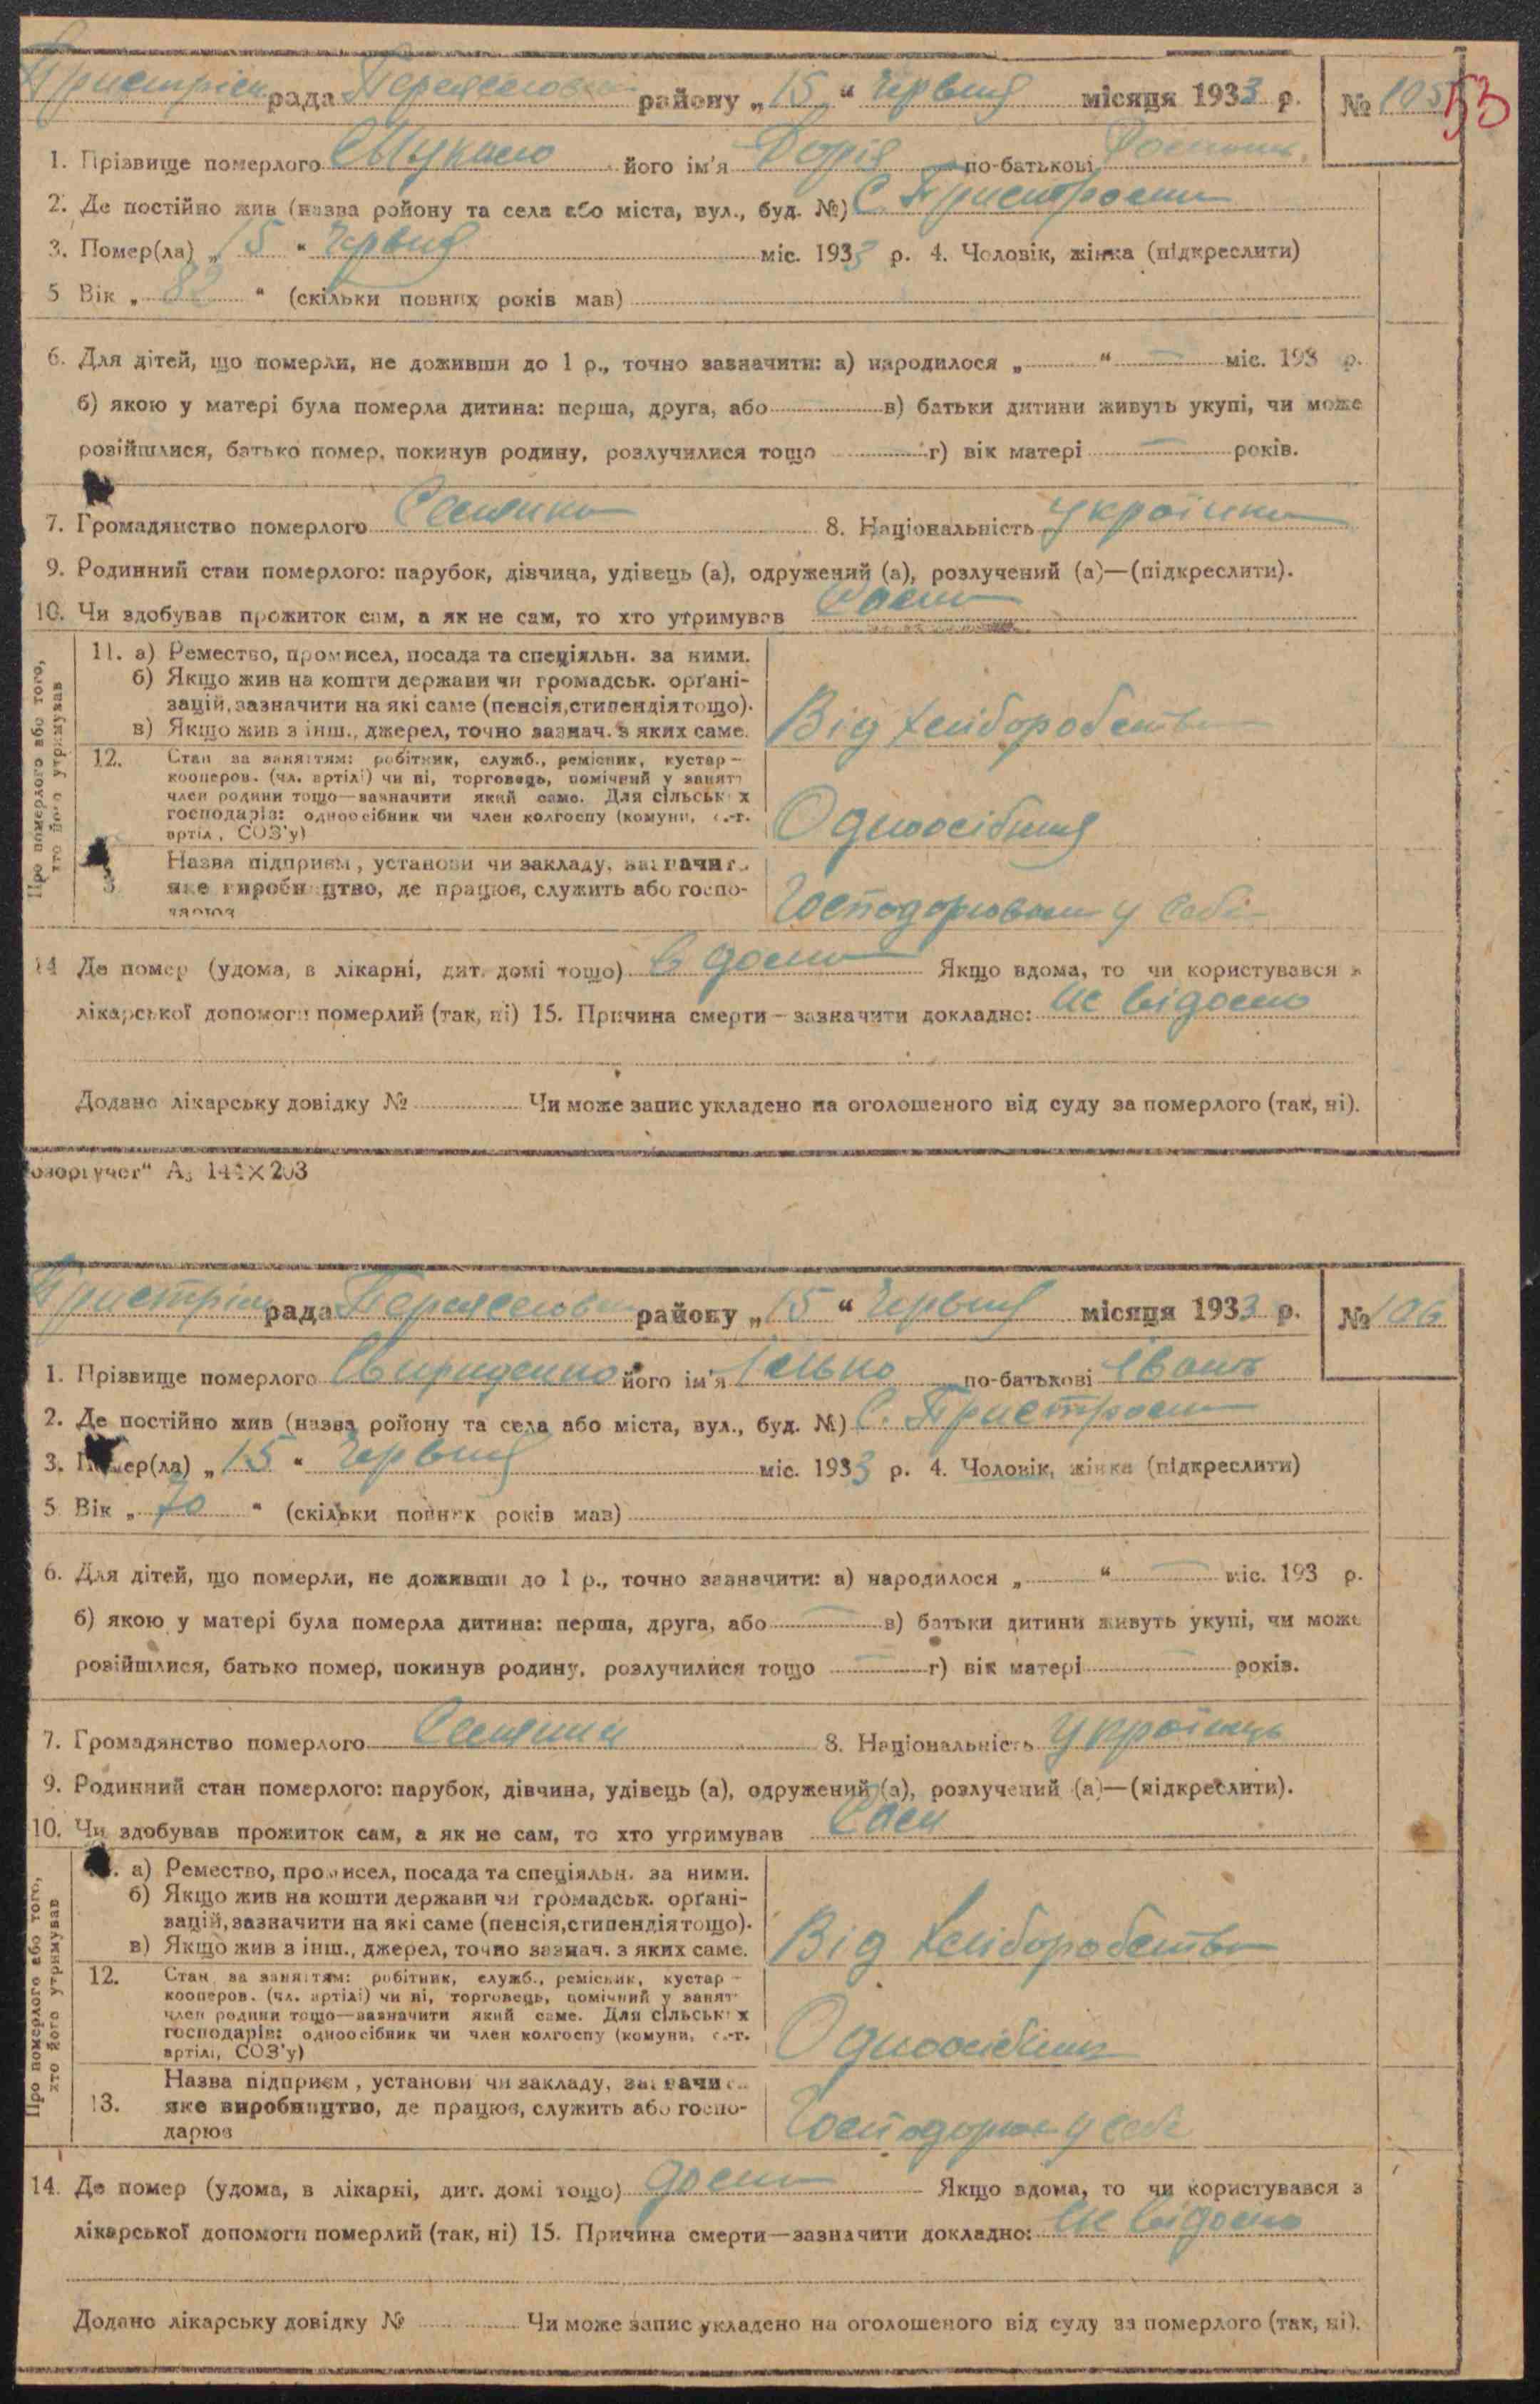 Пристрім рада Переяславськ району „15“ Червня місяця 1933 р. № 105 53
1. Прізвище померлого його ім'я Дарія по-батькові
2. Де постійно жив (назва району та села або міста, вул., буд. №) С. Пристроми
3. Помер(ла) „15“ Червня міс. 1933 р. 4. Чоловік, жінка (підкреслити)
5 Вік „82“ (скільки повних років мав)
6. Для дітей, що померли, не доживши до 1 р., точно зазначити: а) народилося „ “ міс. 193 р.
б) якою у матері була померла дитина: перша, друга, або в) батьки дитини живуть укупі, чи може
розійшлися, батько помер, покинув родину, розлучилися тощо г) вік матері років.
7. Громадянство померлого 8. Національність Українка
9. Родинний стан померлого: парубок, дівчина, удівець (а), одружений (а), розлучений (а)—(підкреслити).
10. Чи здобував прожиток сам, а як не сам, то хто утримував Сама
Про померлого або того, хто його утримував
11. а) Ремество, промисел, посада та спеціяльн. за ними.
б) Якщо жив на кошти держави чи громадськ. орґані-
зацій, зазначити на які саме (пенсія, стипендія тощо).
в) Якщо жив з інш., джерел, точно зазнач. з яких саме.
Від хліборобства
12. Стан за заняттям: робітник, служб., ремісник, кустар –
кооперов. (чл. артілі) чи ні, торговець, помічний у занятт
член родини тощо—зазначити який саме. Для сільськ х
господарів: одноосібник чи член колгоспу (комуни, с.-г.
артіл, СОЗ'у)
Одноосібниця
Назва підприєм, установи чи закладу, зазначит
яке виробництво, де працює, служить або госпо-
дарює
Господарювала у себе
14 Де помер (удома, в лікарні, дит. домі тощо) в дома Якщо вдома, то чи користувався з
лікарської допомоги померлий (так, ні) 15. Причина смерти – зазначити докладно: не відомо
Додано лікарську довідку № Чи може запис укладено на оголошеного від суду за померлого (так, ні).
озоргучет“ А₅ 144×203
Пристрім рада Переяславськ району „15“ Червня місяця 1933 р. № 106
1. Прізвище померлого Свириденко його ім'я по-батькові Іванъ
2. Де постійно жив (назва району та села або міста, вул., буд. №) С. Пристроми
3. Помер(ла) „15“ Червня міс. 1933 р. 4. Чоловік, жінка (підкреслити)
5 Вік „70“ (скільки повних років мав)
6. Для дітей, що померли, не доживши до 1 р., точно зазначити: а) народилося „ “ міс. 193 р.
б) якою у матері була померла дитина: перша, друга, або в) батьки дитини живуть укупі, чи може
розійшлися, батько помер, покинув родину, розлучилися тощо г) вік матері років.
7. Громадянство померлого 8. Національність Українць
9. Родинний стан померлого: парубок, дівчина, удівець (а), одружений (а), розлучений (а)—(підкреслити).
10. Чи здобував прожиток сам, а як не сам, то хто утримував Сам
Про померлого або того, хто його утримував
а) Ремество, промисел, посада та спеціяльн. за ними.
б) Якщо жив на кошти держави чи громадськ. орґані-
зацій, зазначити на які саме (пенсія, стипендія тощо).
в) Якщо жив з інш., джерел, точно зазнач. з яких саме.
Від хліборобства
12. Стан за заняттям: робітник, служб., ремісник, кустар –
кооперов. (чл. артілі) чи ні, торговець, помічний у занят
член родини тощо—зазначити який саме. Для сільськ х
господарів: одноосібник чи член колгоспу (комуни, с.-г.
артілі, СОЗ'у)
Одноосібник
13. Назва підприєм, установи чи закладу, зазначи
яке виробництво, де працює, служить або госпо-
дарює
Господарює у себе
14. Де помер (удома, в лікарні, дит. домі тощо) дома Якщо вдома, то чи користувався з
лікарської допомоги померлий (так, ні) 15. Причина смерти—зазначити докладно: не відомо
Додано лікарську довідку № Чи може запис укладено на оголошеного від суду за померлого (так, ні).